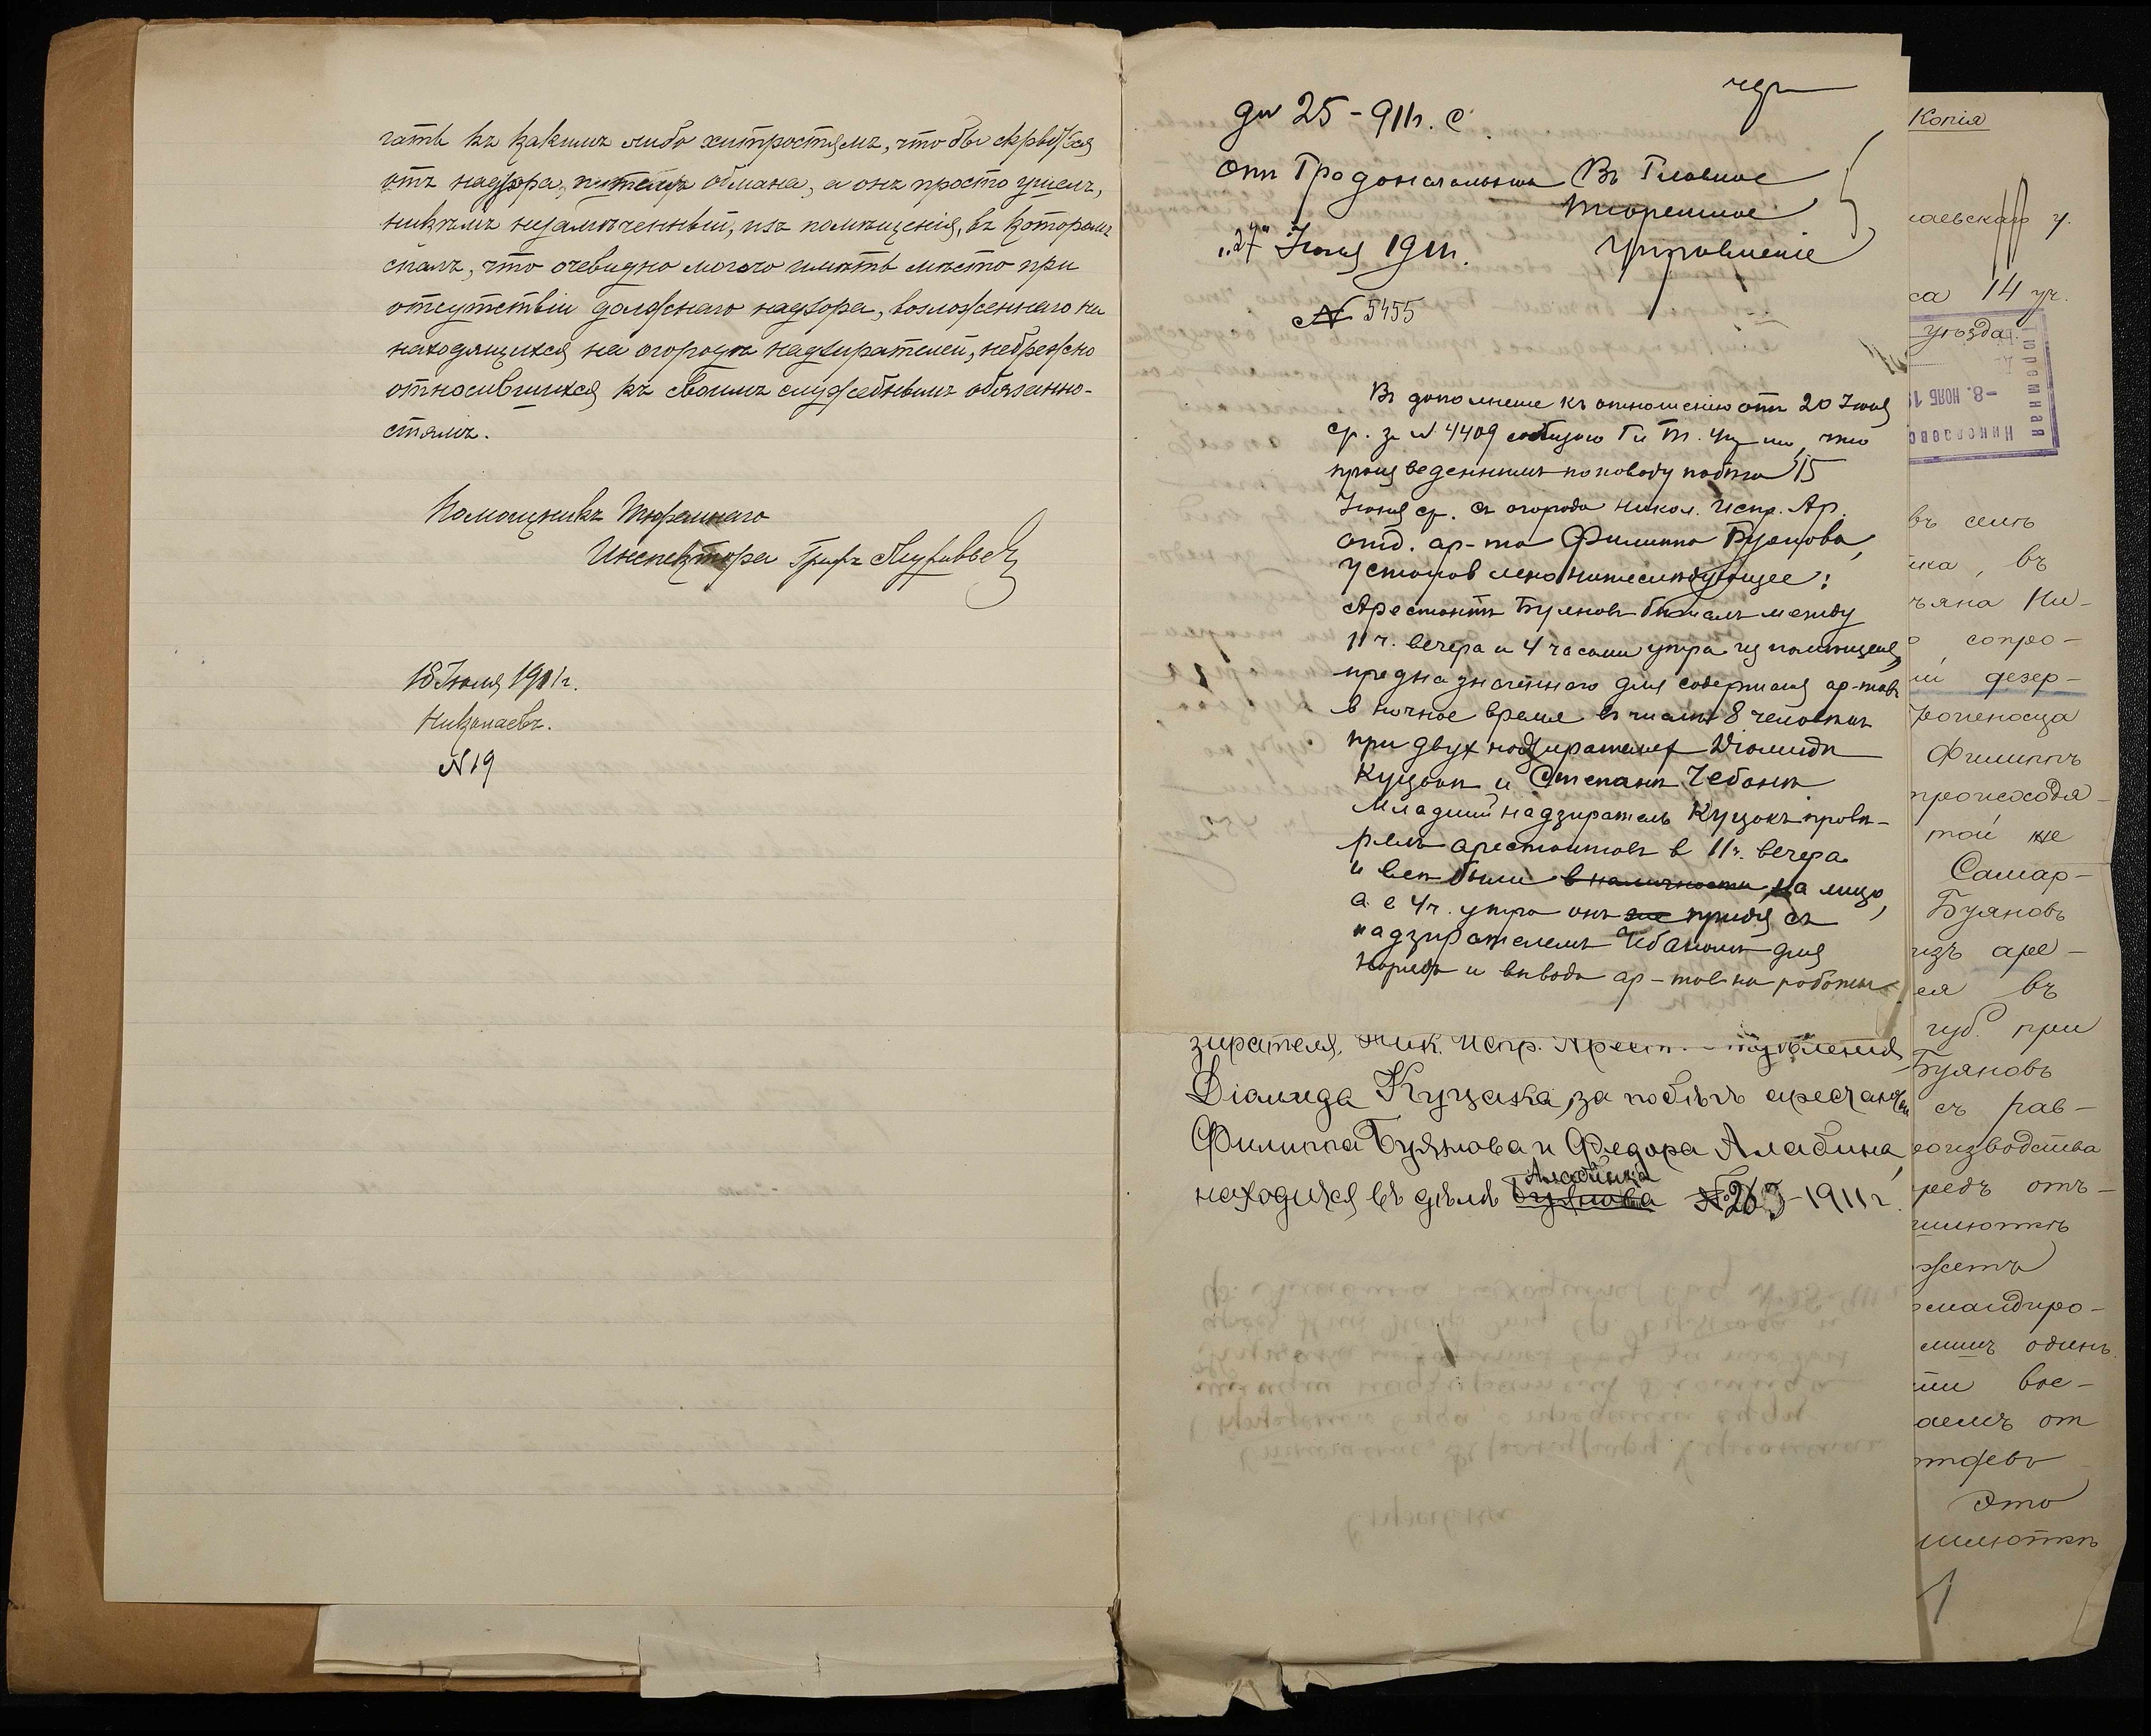 гать къ какимъ либо хитростямъ, что бы скрыться
отъ надзора, путемъ обмана, а онъ просто ушелъ,
никѣмъ незамѣченный, изъ помѣщенія, въ которомъ
спалъ, что очевидно могло имѣть мѣсто при
отсутствіи должнаго надзора, возложеннаго на
находящихся на огородѣ надзирателей, небрежно
относившихся къ своимъ служебнымъ обязанно-
стямъ.
Помощникъ Тюремнаго
Инспектора Графъ
18 Іюля 1911 г.
Николаевъ.
№ 19
25-911 г. с
Отъ Градоначальника
Въ Главное
Тюремное
Управленіе
"27" Іюля 1911.
№ 5455
Въ дополненіе къ отношенію отъ 20 Іюня
ср. за № 4409 сообщаю Гл. Т. Упр-ію, что
произведеннымъ по поводу побѣга 15
Іюня ср. съ огорода Никол. Испр. Ар.
отд. ар-та Филиппа Буянова,
установлено нижеслѣдующее:
Арестантъ Буяновъ бѣжалъ между
11 ч. вечера и 4 часами утра изъ помѣщенія,
предназначеннаго для содержанія ар-товъ
в ночное время въ числѣ 8 человѣкъ
при двух надзирателях Діомидѣ
Куцокѣ и Степанѣ Чебанѣ
Младшій надзиратель Куцокъ провѣ-
рялъ арестантовъ в 11 ч. вечера
и всѣ были в наличности на лицо,
а в 4 ч. утра онъ придя съ
надзирателемъ Чебаномъ для
и вывода ар-товъ на работы
зирателя Ник. Испр. Арест. Отдѣленія
Діомида Куцака, за побѣгъ арестантовъ
Филиппа Буянова и Федора Алабина,
находится въ дѣлѣ Буянова Алабина № 263-1911 г.
Копія
лаевскаго у.
са 14 уч.
уѣзда
Тюремная
-8. НОЯБ 19
Николаевс
въ селѣ
ика, въ
чьяна Ни-
сопро-
ий дезер-
Филиппъ
происходя-
той же
Самар-
Буяновъ
изъ аре-
ся въ
губ. при
Буяновъ
съ рав-
роизводства
редъ отъ-
жетъ
омандиро-
лишъ одинъ
ти вос-
аемъ от
Это